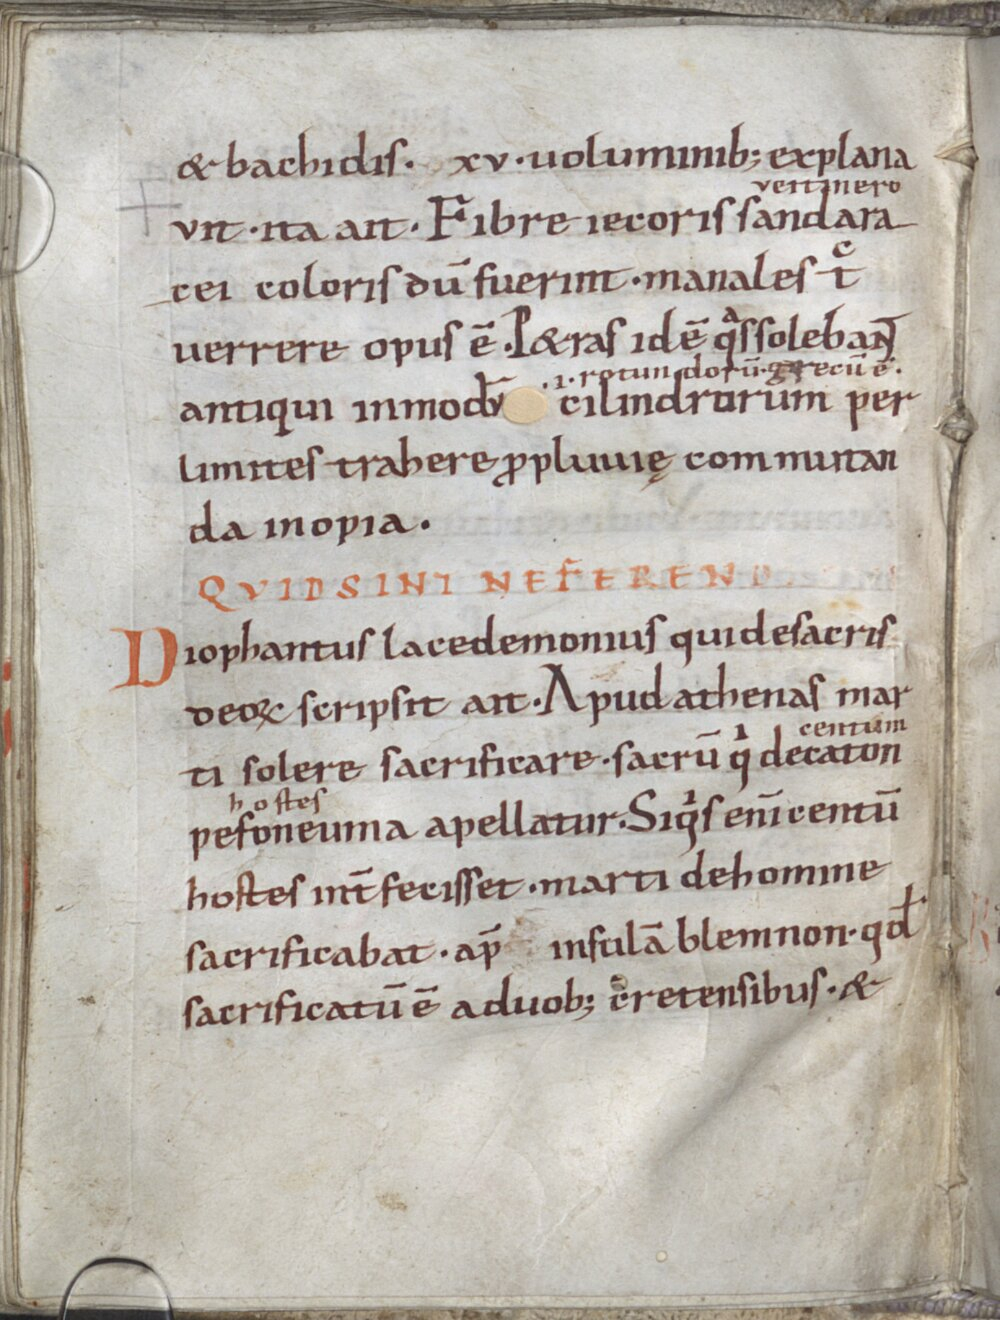 & bachidis. xv. uoluminib; explana
vert in ero
vnt. ita ait. Fibre iecoris sandara
cei coloris dū fuerint. manales tc̄
uerrere opus ē. P&ras idē qͣs solebant
.i. rotundorū. grecū ē.
antiqui inmodv̄ cilindrorum per
limites trahere ꝓpluuię commutan
da inopia.
QVID SINT NEFREND
Diophantus lacedemonius qui desacris
deoꝝ scripsit ait. Apud athenas mar
ti solere sacrificare. sacrū qͥ decaton
centum
hostes
pefoneuma apellatur. Siqͥs enī centū
hostes int̄fecisset. marti dehomine
sacrificabat. ap̄ insulā blemnon. qđ
sacrificatū ē aduob; cretensibus. &